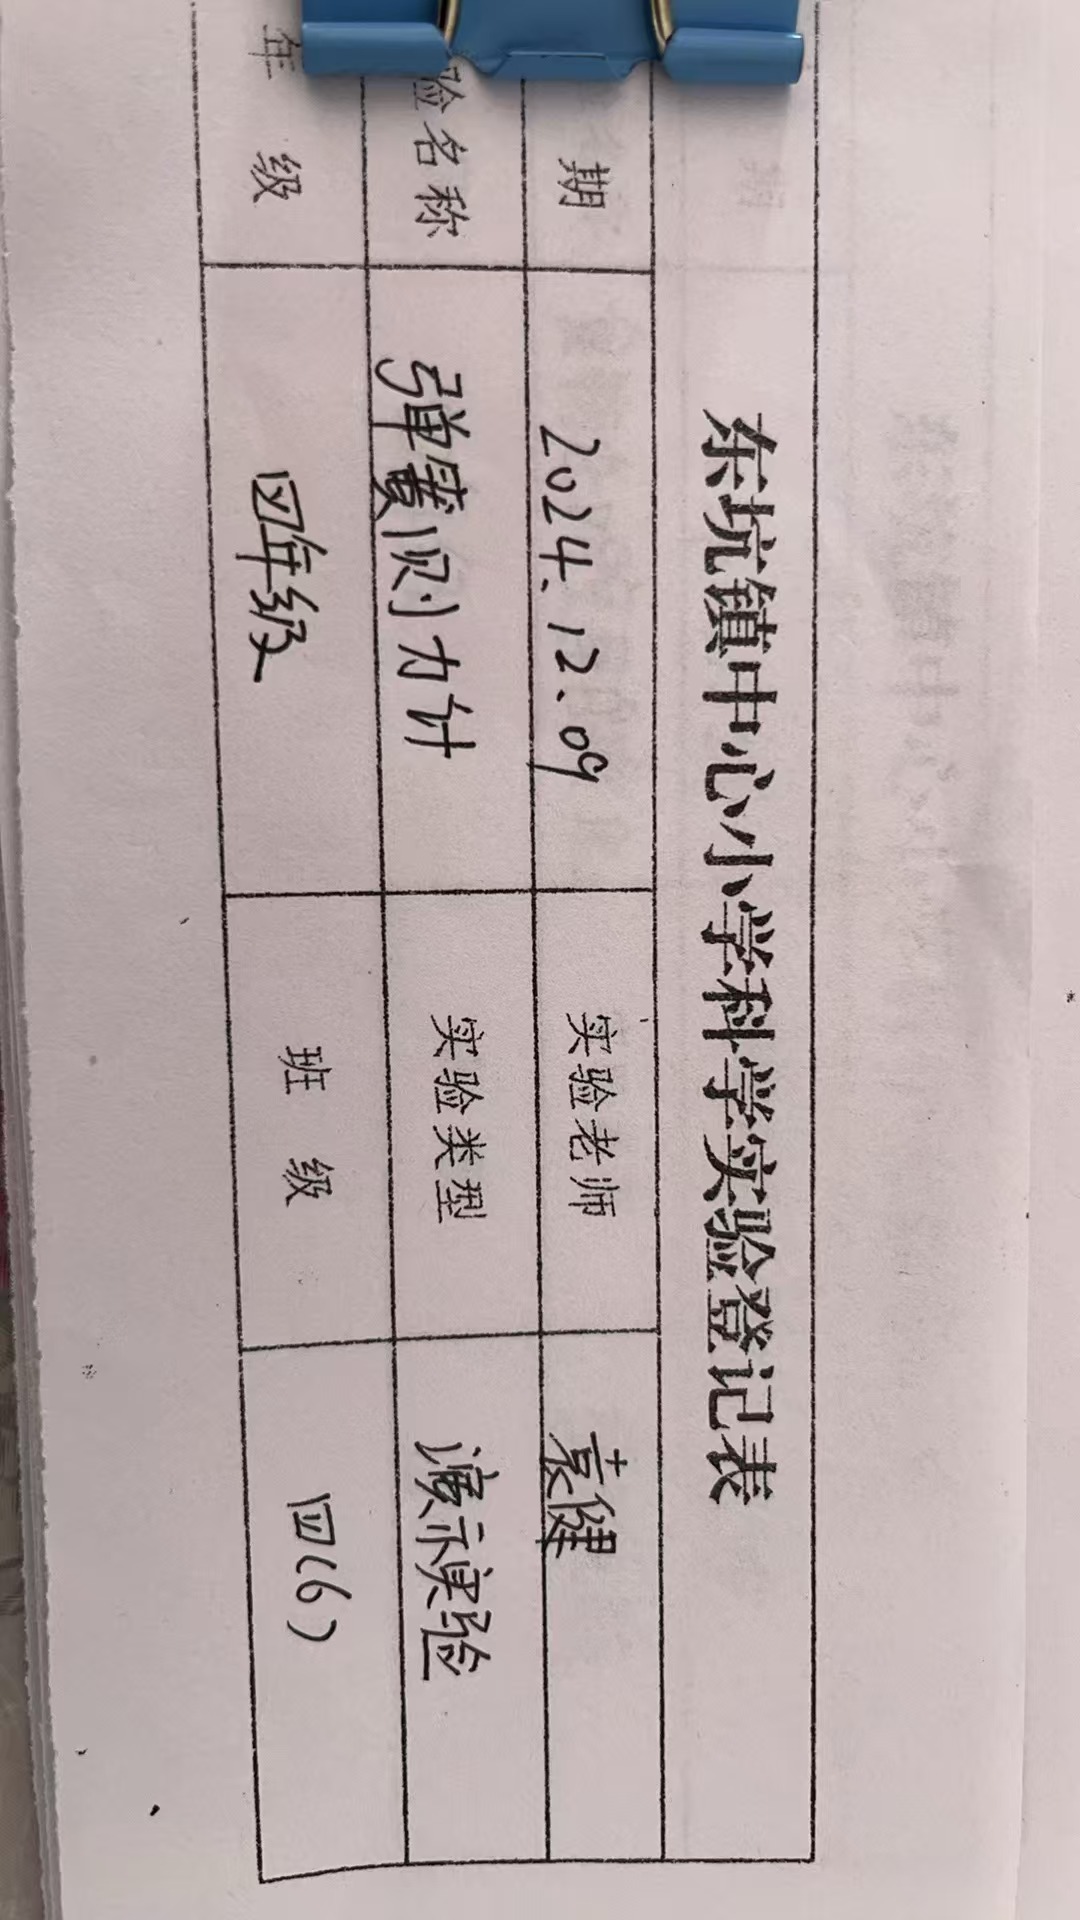 东坑镇中心小学科学实验登记表
期 2024.12.09 实验老师 袁健
验名称 弹簧测力计 实验类型 演示实验
年级 四年级 班级 四(6)